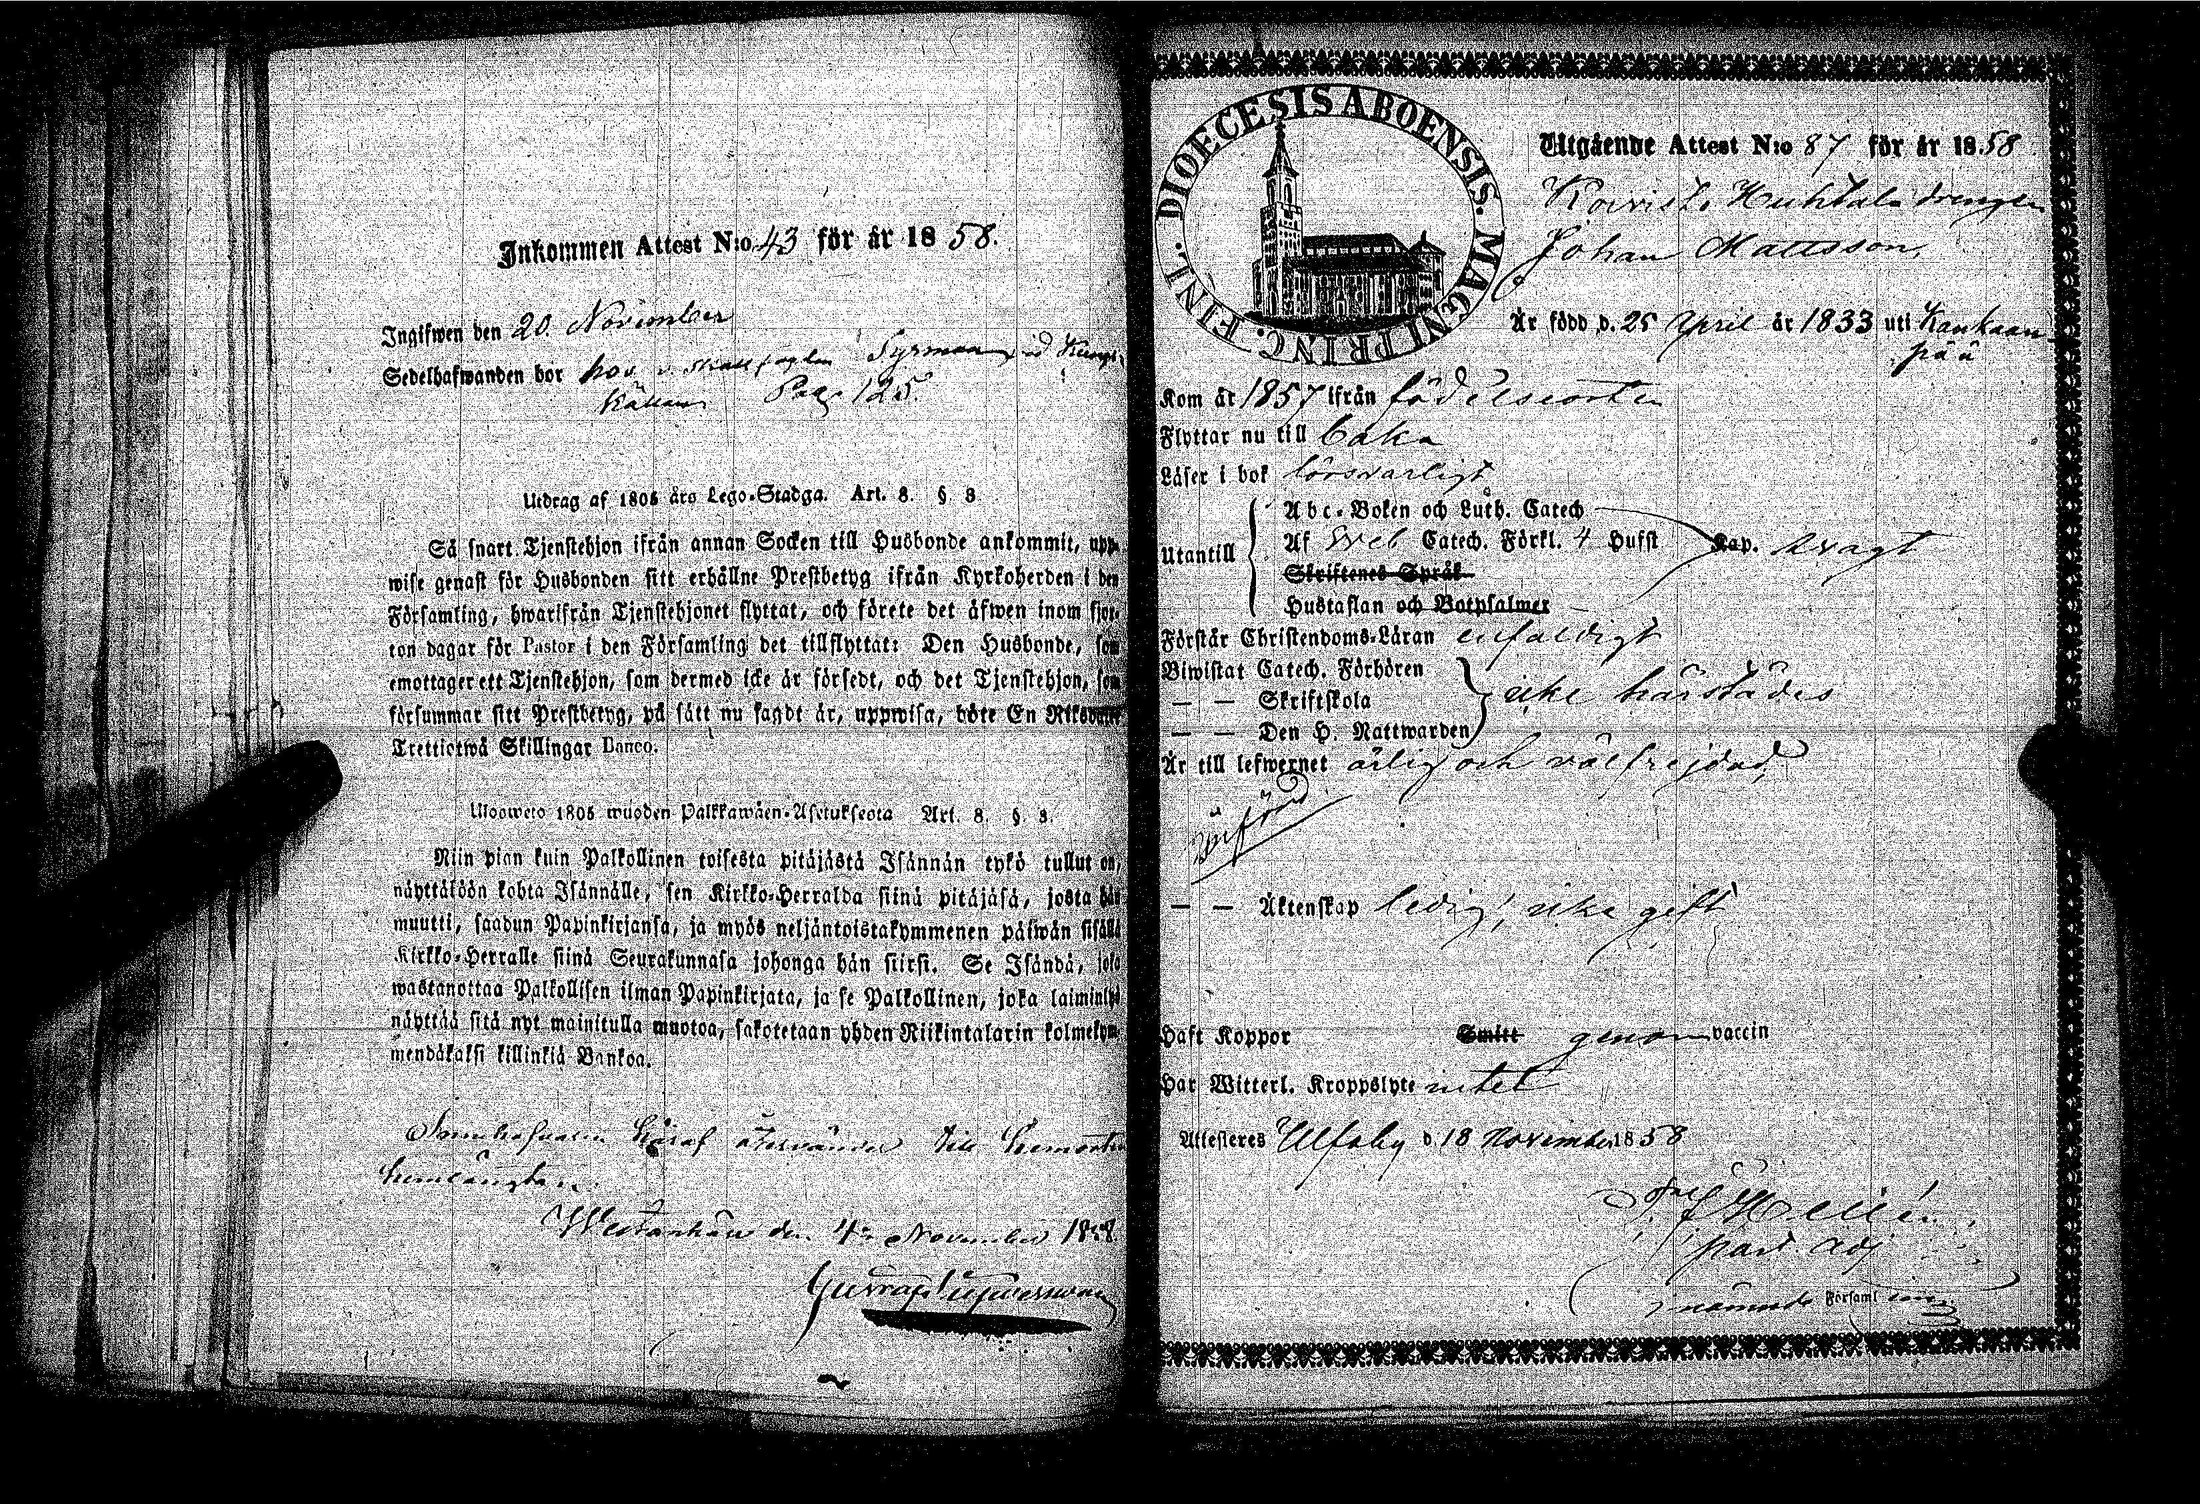 Inkommen Attest N:o 43 för år 1858.
Ingifwen den 20 November
Sedelhafwanden bor hos
Pag. 125.
Utdrag af 1805 års Lego-Stadga. Art. 8. § 3
Så snart Tjenstehjon ifrån annan Socken till Husbonde ankommit, upp-
wise genast för Husbonden sitt erhållne Prestbetyg ifrån Kyrkoherden i den
Församling, hwarifrån Tjenstehjonet flyttat, och förete det äfwen inom fjor-
ton dagar för Pastor i den Församling det tillflyttat: Den Husbonde, som
emottager ett Tjenstehjon, som dermed icke är försedt, och det Tjenstehjon, som
försummar sitt Prestbetyg, på sätt nu sagdt är, uppwisa, böte En Riksdaler
Trettiotwå Skillingar Banco.
Ulosweto 1805 wuoden Palkkawäen-Asetuksesta Art. 8. §. 3.
Niin pian kuin Palkollinen toisesta pitäjästä Isännän tykö tullut on,
näyttäköön kohta Isännälle, sen Kirkko-Herralda siinä pitäjäsä, josta hän
muutti, saadun Papinkirjansa, ja myös neljäntoistakymmenen päiwän sisällä
Kirkko-Herralle siinä Seurakunnasa johonga hän siirsi. Se Isändä, joka
wastanottaa Palkollisen ilman Papinkirjata, ja se Palkollinen, joka laiminlyö
näyttää sitä nyt mainitulla muotoa, sakotetaan yhden Riikintalarin kolmekym-
mendäkaksi killinkiä Bankoa.
återvänder till hemorten
den 4 November 1858
DIOECESIS ABOENSIS. MAGNI PRINC. FINL.
Utgående Attest N:o 87 för år 1858
Koivisto Huhtala drengen
Johan Mattsson,
Är född d. 25 April år 1833 uti Kankaan-
pää
Kom år 1857 ifrån födelseorten
Flyttar nu till
Läser i bok försvarligt
Utantill
Abc-Boken och Luth. Catech
Af Sveb Catech. Förkl. 4 Hufst
Kap. svagt
Skriftenes Språk
Hustaflan och Botpsalmer
Förstår Christendoms-Läran enfaldigt
Biwistat Catech. Förhören
— — Skriftskola
— — Den H. Nattwarden
icke härstädes
Är till lefwernet ärlig och välfrejdad,
Införd
— — Äktenskap ledig, icke gift
Haft Koppor Smitt genom vaccin
Har Witterl. Kroppslyte intet
Attesteres Ulfsby d. 18 November 1858
past. adj
Församl